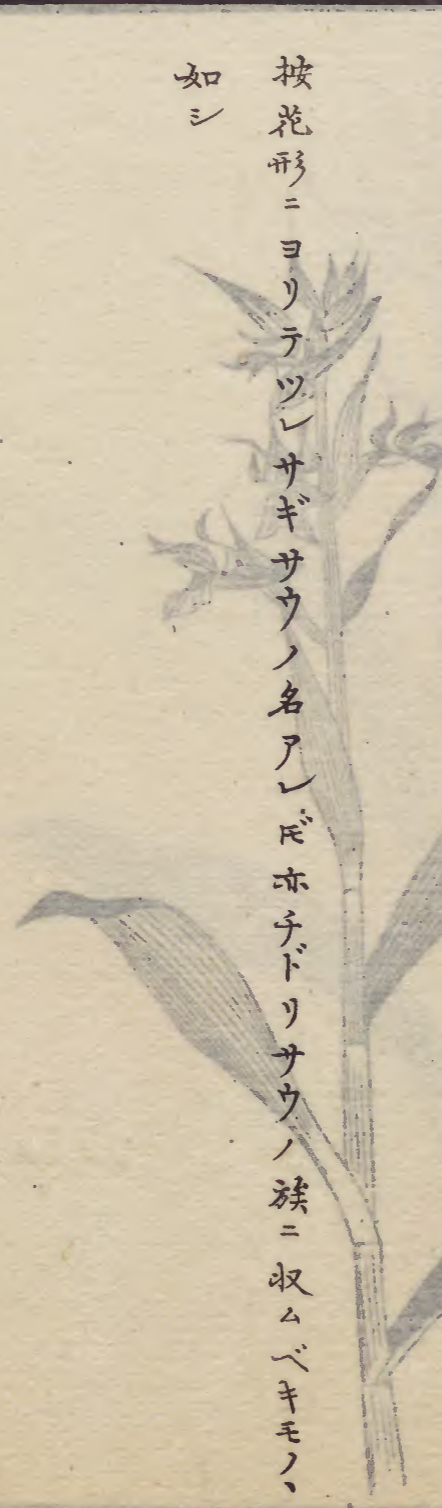 按花形ニヨリテツレサギサウノ名アレ𪜈亦チドリサウノ族ニ収ムベキモノヽ
如シ